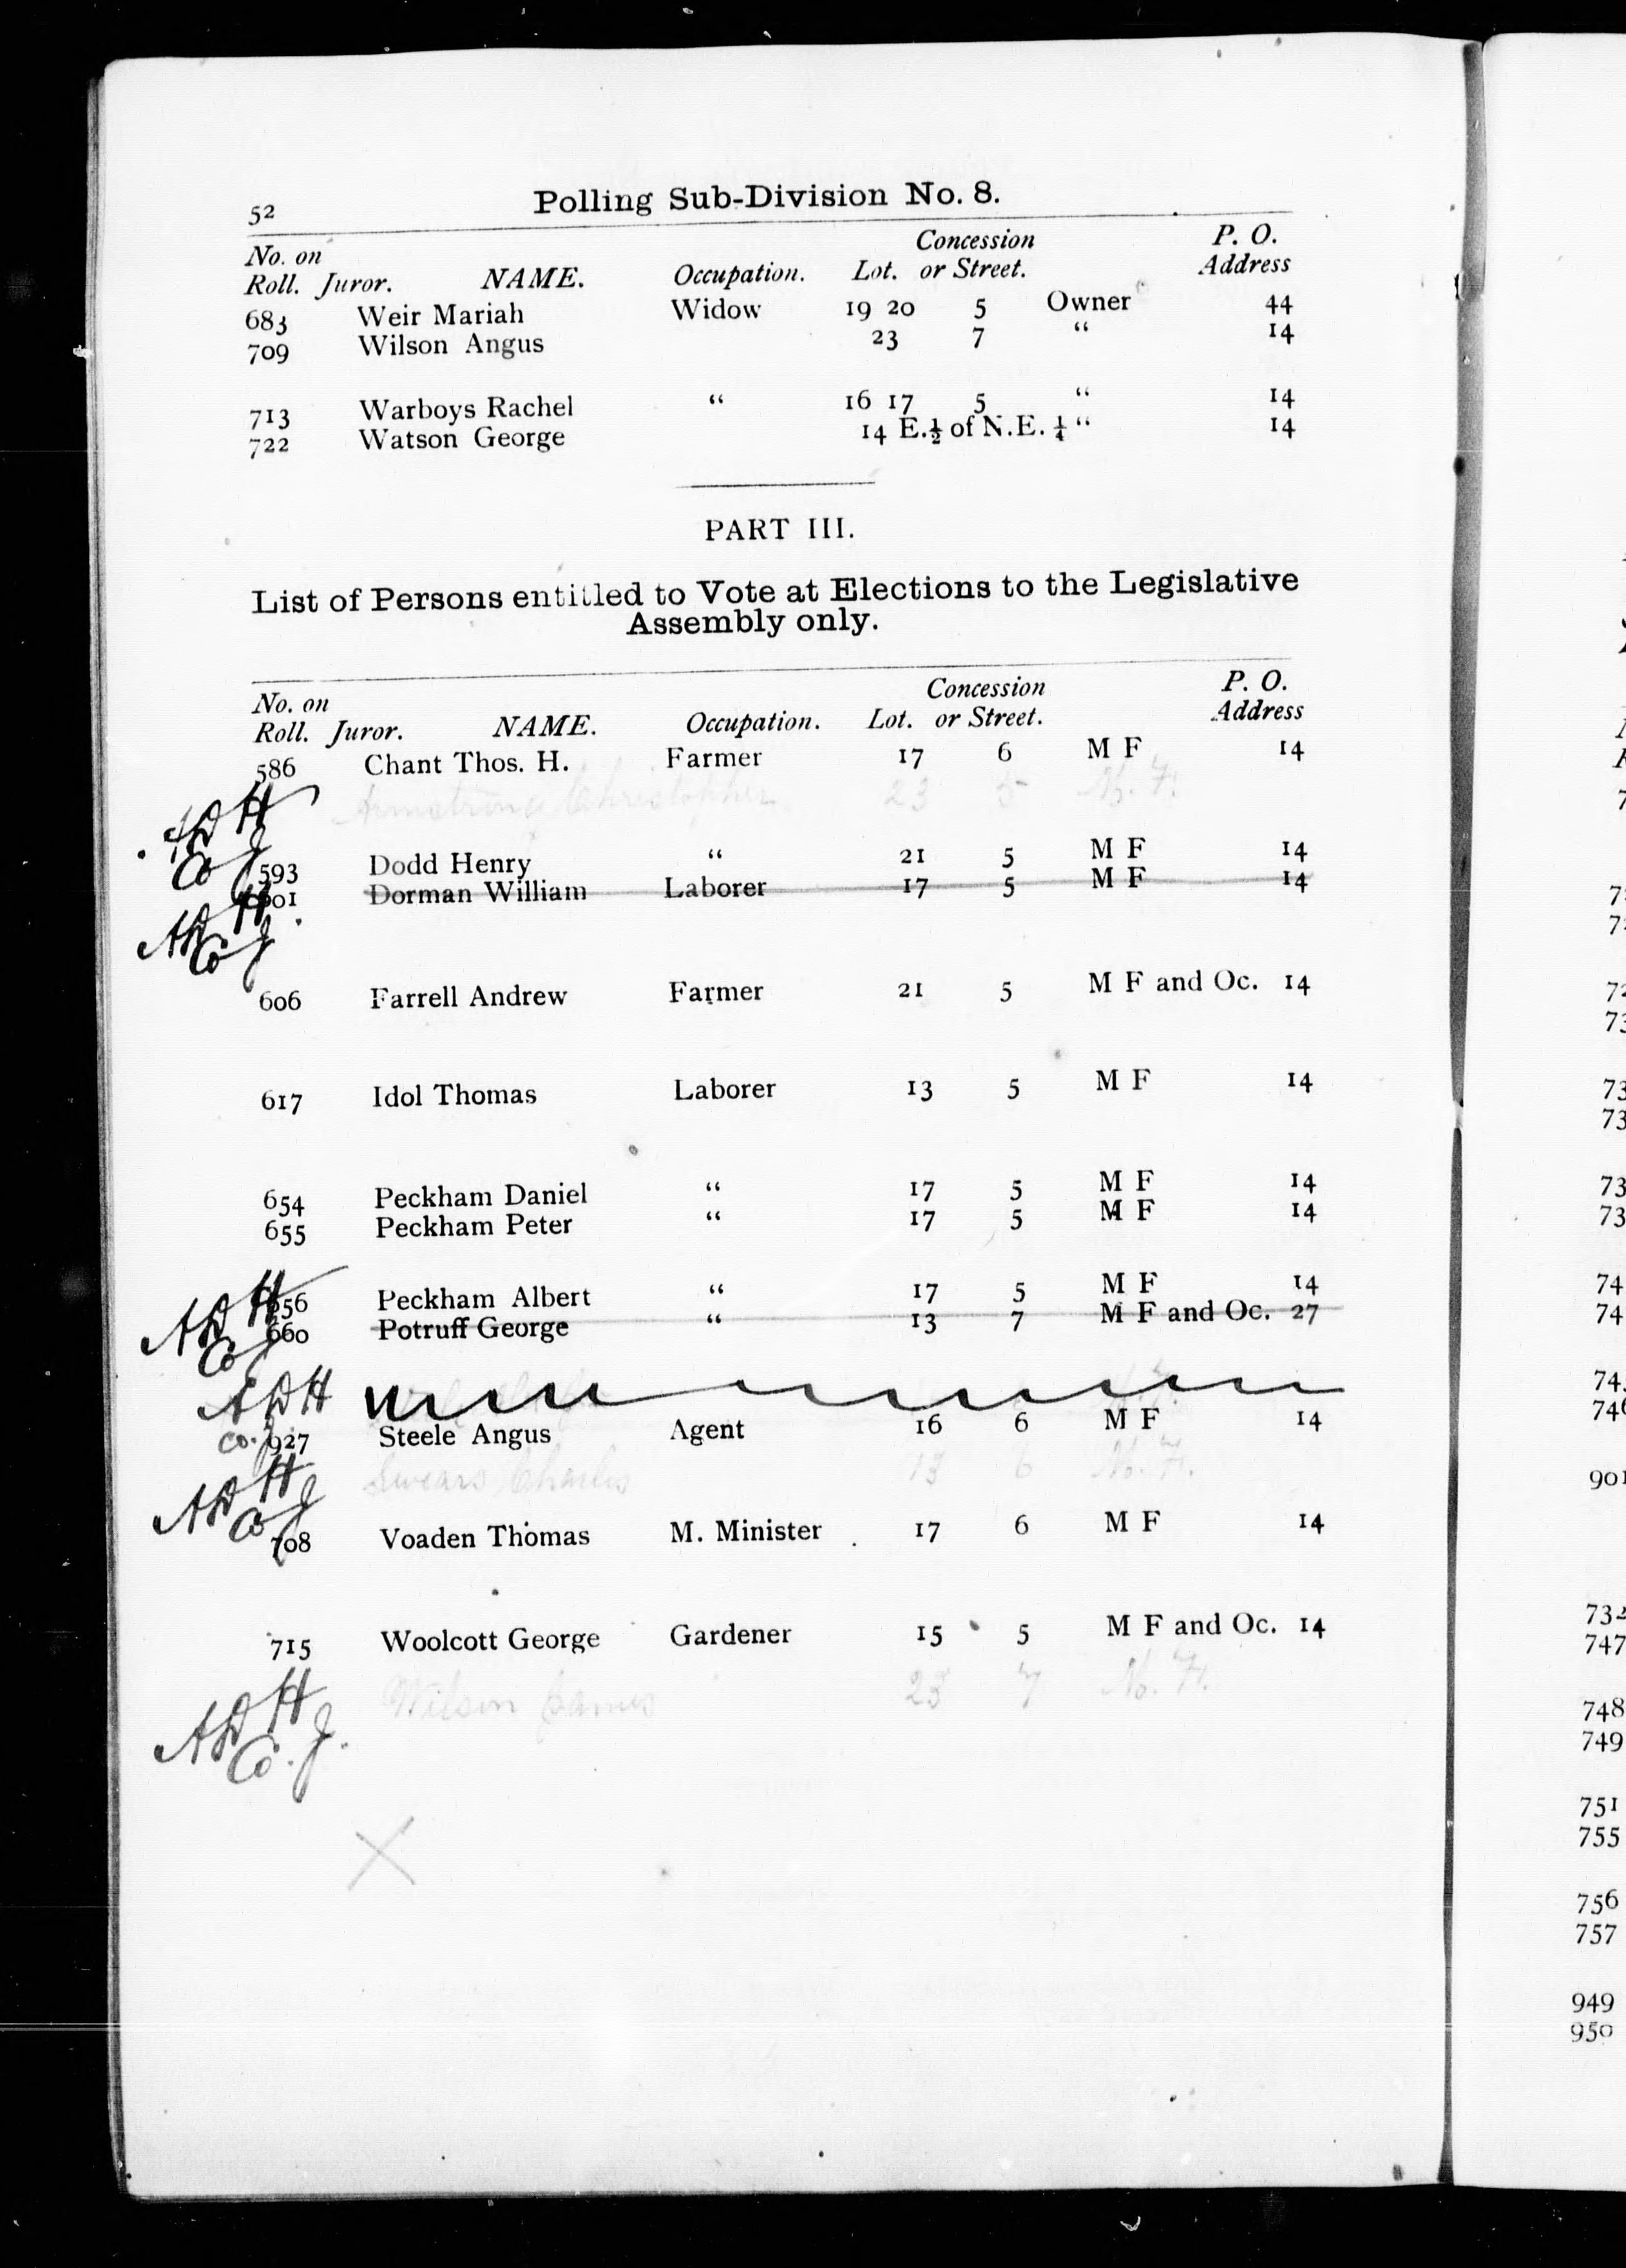 52 Polling Sub-Division No. 8.
No. on Concession P. O.
Roll. Juror. NAME. Occupation. Lot. or Street. Address
683 Weir Mariah Widow 19 20 5 Owner 44
709 Wilson Angus 23 7 “ 14
713 Warboys Rachel “ 16 17 5 “ 14
722 Watson George 14 E.½ of N.E. ¼ “ 14
PART III.
List of Persons entitled to Vote at Elections to the Legislative
Assembly only.
No. on Concession P. O.
Roll. Juror. NAME. Occupation. Lot. or Street. Address
586 Chant Thos. H. Farmer 17 6 M F 14
A D H Armstrong Christopher 23 5 M. F.
Co J
593 Dodd Henry “ 21 5 M F 14
601 Dorman William Laborer 17 5 M F 14
A D H
Co J
606 Farrell Andrew Farmer 21 5 M F and Oc. 14
617 Idol Thomas Laborer 13 5 M F 14
654 Peckham Daniel “ 17 5 M F 14
655 Peckham Peter “ 17 5 M F 14
656 Peckham Albert “ 17 5 M F 14
A D H
660 Potruff George “ 13 7 M F and Oc. 27
Co J
A D H
Co. J
927 Steele Angus Agent 16 6 M F 14
A D H Swears Charles 13 6 M. F.
Co J
708 Voaden Thomas M. Minister 17 6 M F 14
715 Woolcott George Gardener 15 5 M F and Oc. 14
A D H Wilson James 23 7 M. F.
Co. J.
7
73
73
73
73
74
74
74
901
732
747
748
749
751
755
756
757
949
950